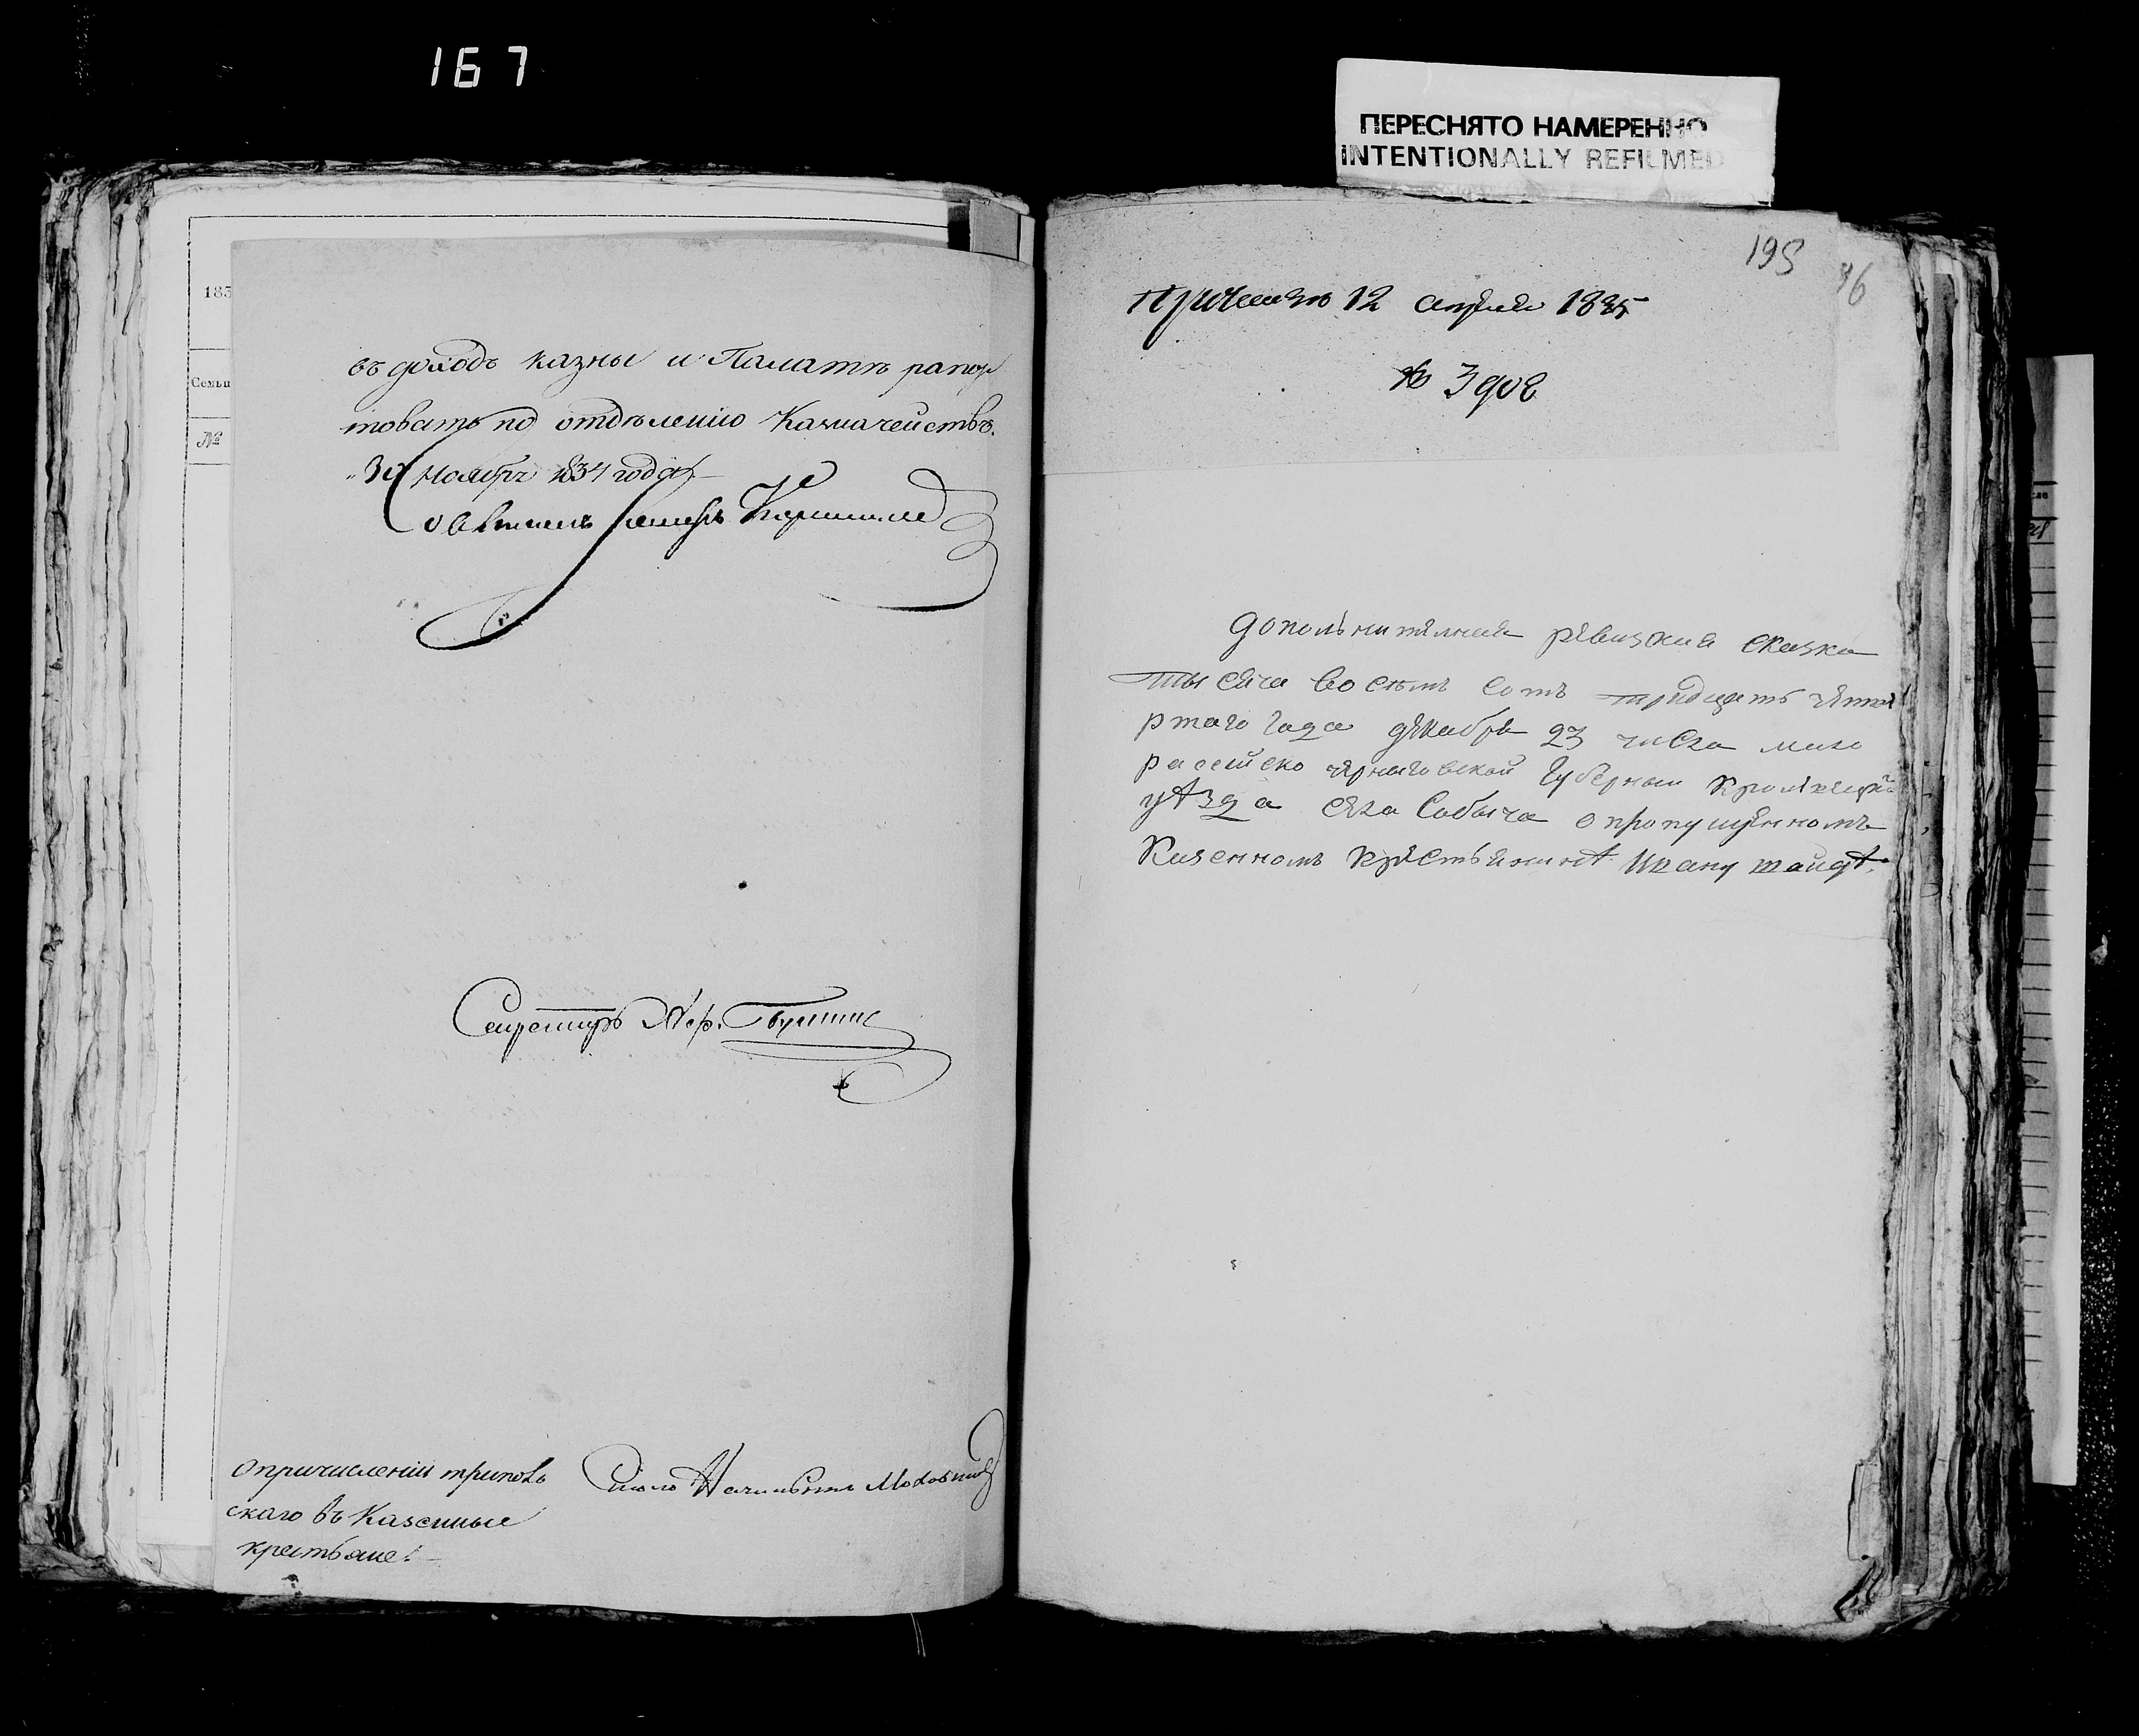 167
ПЕРЕСНЯТО НАМЕРЕННО
INTENTIONALLY REFILMED
183
Семьи
№
въ доходъ казны и Палатѣ рапор
товать по отдѣленію Казначействъ.
"30 Ноября 1834 года
Совѣтникъ
Секретарь
О причисленіи
скаго въ Казенные
крестьяне.
Столо Начальникъ
195
96
12 апреля 1835
№ 3908
дополнителная рѣвизкая сказка
тысяча восемъ сотъ тридцать чятвя
ртаго года дякабря 23 числа мало
россійско чярниговской губерніи Кролявецкой
уѣзда сяла Собыча о пропущянномъ
Казенномъ крястьянинѣ Ивану